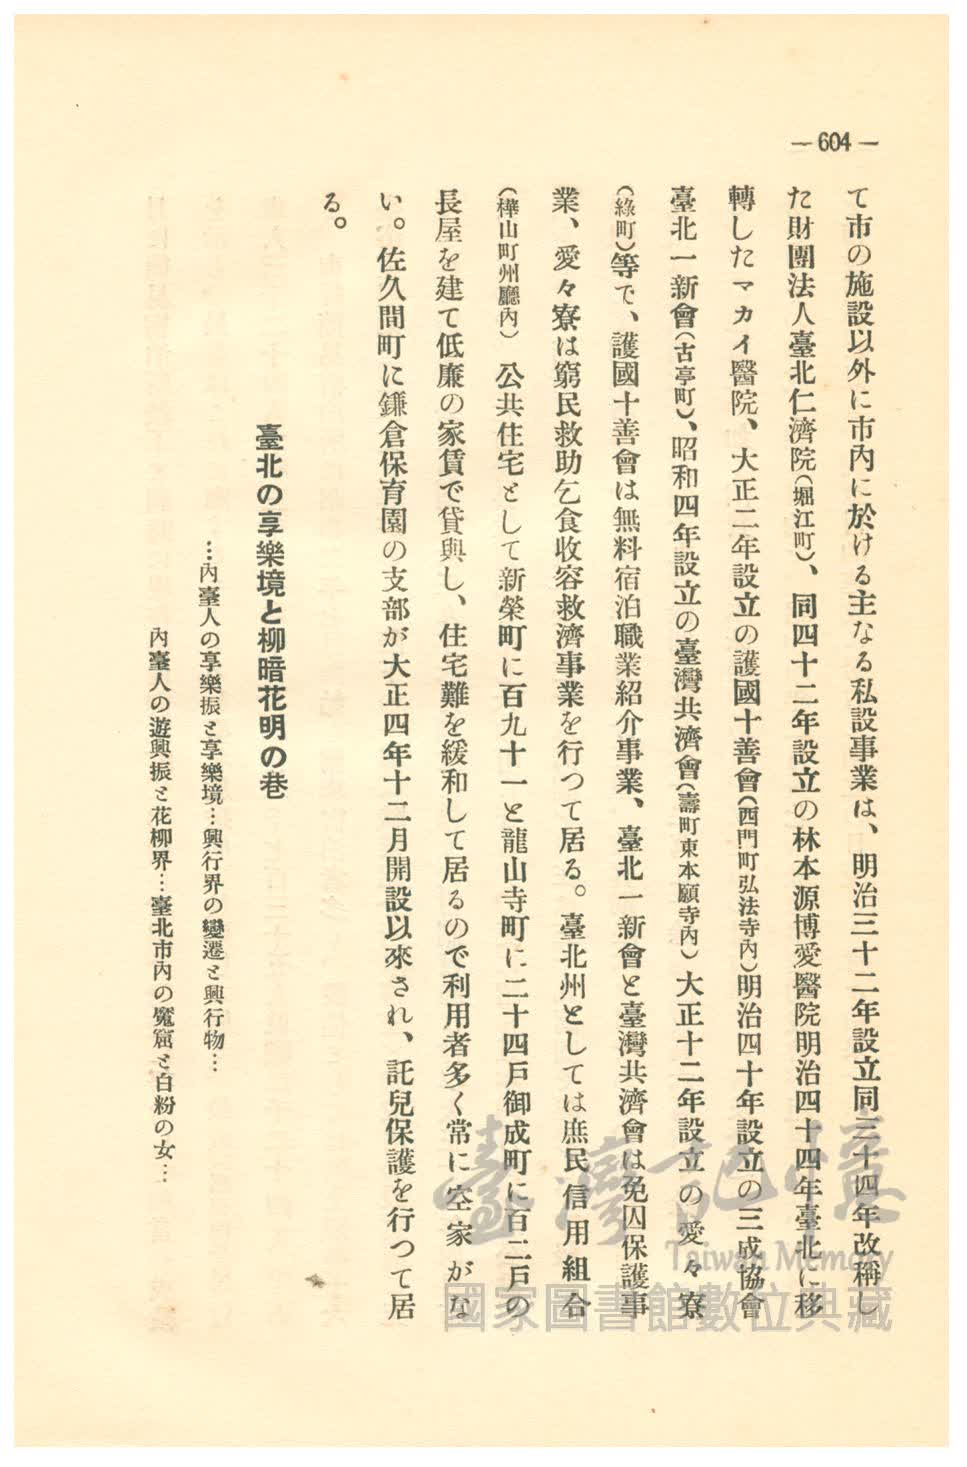 — 604 —
て市の施設以外に市內に於ける主なる私設事業は、明治三十二年設立同三十四年改稱し
た財團法人臺北仁濟院(堀江町)、同四十二年設立の林本源博愛醫院明治四十四年臺北に移
轉したマカイ醫院、大正二年設立の護國十善會(西門町弘法寺內)明治四十年設立の三成協會
臺北一新會(古亭町)、昭和四年設立の臺灣共濟會(壽町東本願寺內)大正十二年設立の愛々寮
(綠町)等で、護國十善會は無料宿泊職業紹介事業、臺北一新會と臺灣共濟會は免囚保護事
業、愛々寮は窮民救助乞食收容救濟事業を行つて居る。臺北州としては庶民信用組合
(樺山町州廳內)公共住宅として新榮町に百九十一と龍山寺町に二十四戶御成町に百二戶の
長屋を建て低廉の家賃で貸與し、住宅難を緩和して居るので利用者多く常に空家がな
い。佐久間町に鎌倉保育園の支部が大正四年十二月開設以來され、託兒保護を行つて居
る。
臺北の享樂境と柳暗花明の巷
…內臺人の享樂振と享樂境…興行界の變遷と興行物…
內臺人の遊興振と花柳界…臺北市內の魔窟と白粉の女…
臺灣記憶
Taiwan Memory
國家圖書館數位典藏